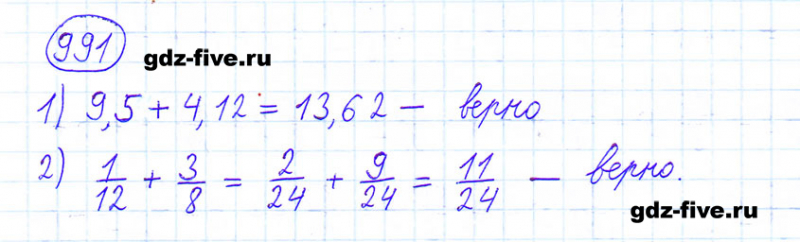 991 gdz-five.ru
1) 9,5 + 4,12 = 13,62 — верно
2) 1/12 + 3/8 = 2/24 + 9/24 = 11/24 — верно.
gdz-five.ru